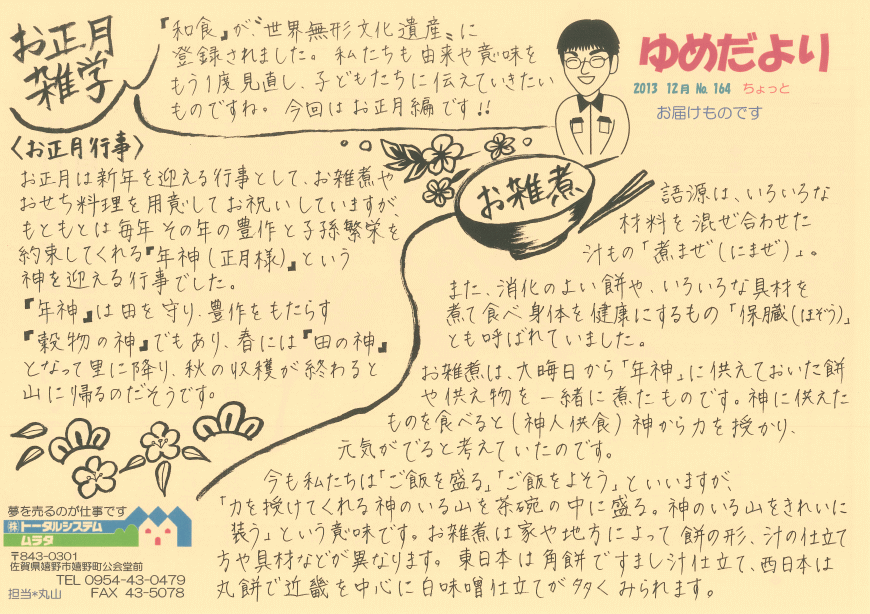 お正月
雑学
『和食』が〝世界無形文化遺産〟に
登録されました。私たちも由来や意味を
もう1度見直し、子どもたちに伝えていきたい
ものですね。今回はお正月編です!!
ゆめだより
2013 12月 No. 164 ちょっと
お届けものです
〈お正月行事〉
お正月は新年を迎える行事として、お雑煮や
おせち料理を用意してお祝いしていますが、
もともとは毎年その年の豊作と子孫繁栄を
約束してくれる『年神(正月様)』という
神を迎える行事でした。
『年神』は田を守り、豊作をもたらす
『穀物の神』でもあり、春には『田の神』
となって里に降り、秋の収穫が終わると
山に帰るのだそうです。
お雑煮
語源は、いろいろな
材料を混ぜ合わせた
汁もの「煮まぜ(にまぜ)」。
また、消化のよい餅や、いろいろな具材を
煮て食べ身体を健康にするもの「保臓(ほぞう)」
とも呼ばれていました。
お雑煮は、大晦日から「年神」に供えておいた餅
や供え物を一緒に煮たものです。神に供えた
ものを食べると(神人供食)神から力を授かり、
元気がでると考えていたのです。
今も私たちは「ご飯を盛る」「ご飯をよそう」といいますが、
「力を授けてくれる神のいる山を茶碗の中に盛る。神のいる山をきれいに
装う」という意味です。お雑煮は家や地方によって餅の形、汁の仕立て
方や具材などが異なります。東日本は角餅ですまし汁仕立て、西日本は
丸餅で近畿を中心に白味噌仕立てが多くみられます。
夢を売るのが仕事です
㈱トータルシステム
ムラタ
〒843-0301
佐賀県嬉野市嬉野町公会堂前
TEL 0954-43-0479
担当*丸山 FAX 43-5078